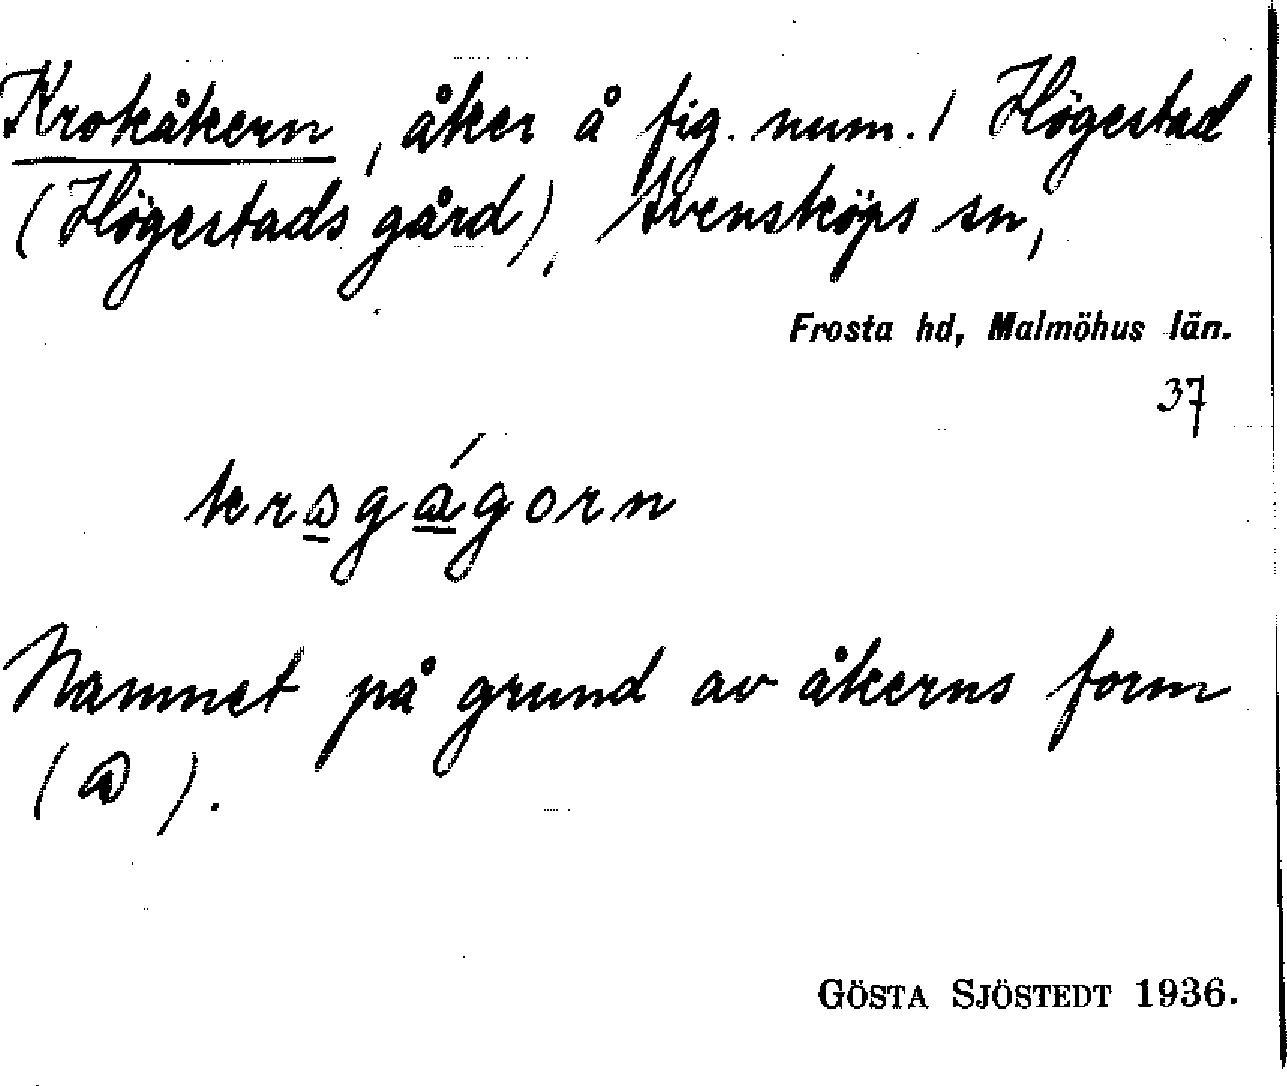 Krokåkern, åker å fig. num. 1 Högestad
(Högestads gård), Svensköps sn,
Frosta hd, Malmöhus län.
37
Namnet på grund av åkerns form
(a).
GÖSTA SJÖSTEDT 1936.